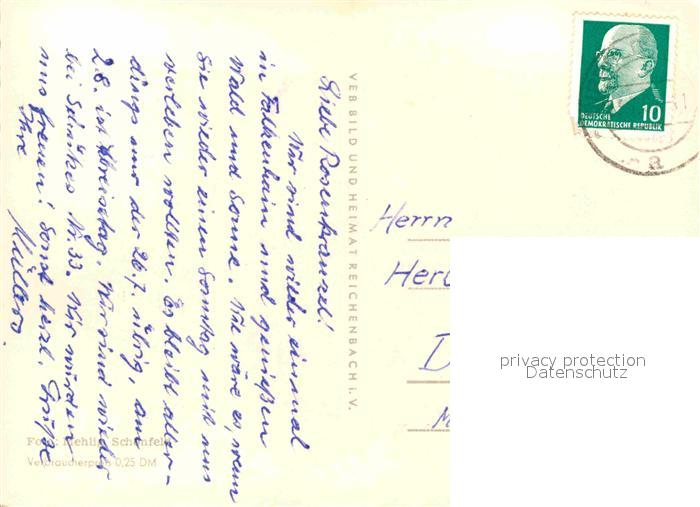 Liebe Rosenkranzel!
Wir sind wieder einmal
in Falkenhain und genießen
Wald und Sonne. Wie wäre es, wenn
Sie wieder einen Sonntag mit uns
verleben wollten. Es bleibt aller-
dings nur der 26.7. übrig, am
2.8. ist Abreisetag. Wir sind wieder
bei Nr. 33. Wir würden
uns freuen! Sonst herzl. Grüße
Ihre
Müllers.
VEB BILD UND HEIMAT REICHENBACH i. V.
Foto: Mehlig, Schönfeld
Verbraucherpreis 0,25 DM
10
DEUTSCHE
DEMOKRATISCHE REPUBLIK
a
Herrn
Her
D
privacy protection
Datenschutz